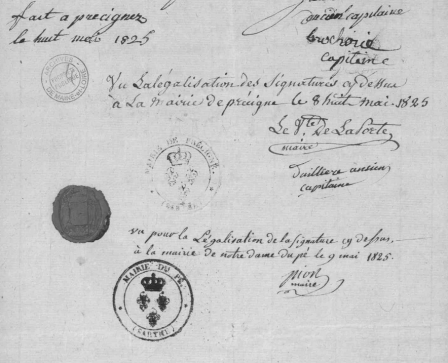 fait a precigné
le huit mai 1825
ancien capitaine
capitaine
Vu Lalégalisation des Signatures cy dessus
à La mairie de précigné le 8 huit mai 1825
Le Vte De La Porte
maire
MAIRIE DE PRECIGNÉ
(SARTHE)
ancien
capitaine
vu pour la Légalisation de la signature cy dessus,
à la mairie de notre dame du pé le 9 mai 1825.
pion
maire
MAIRIE DU PÉ
(SARTHE)